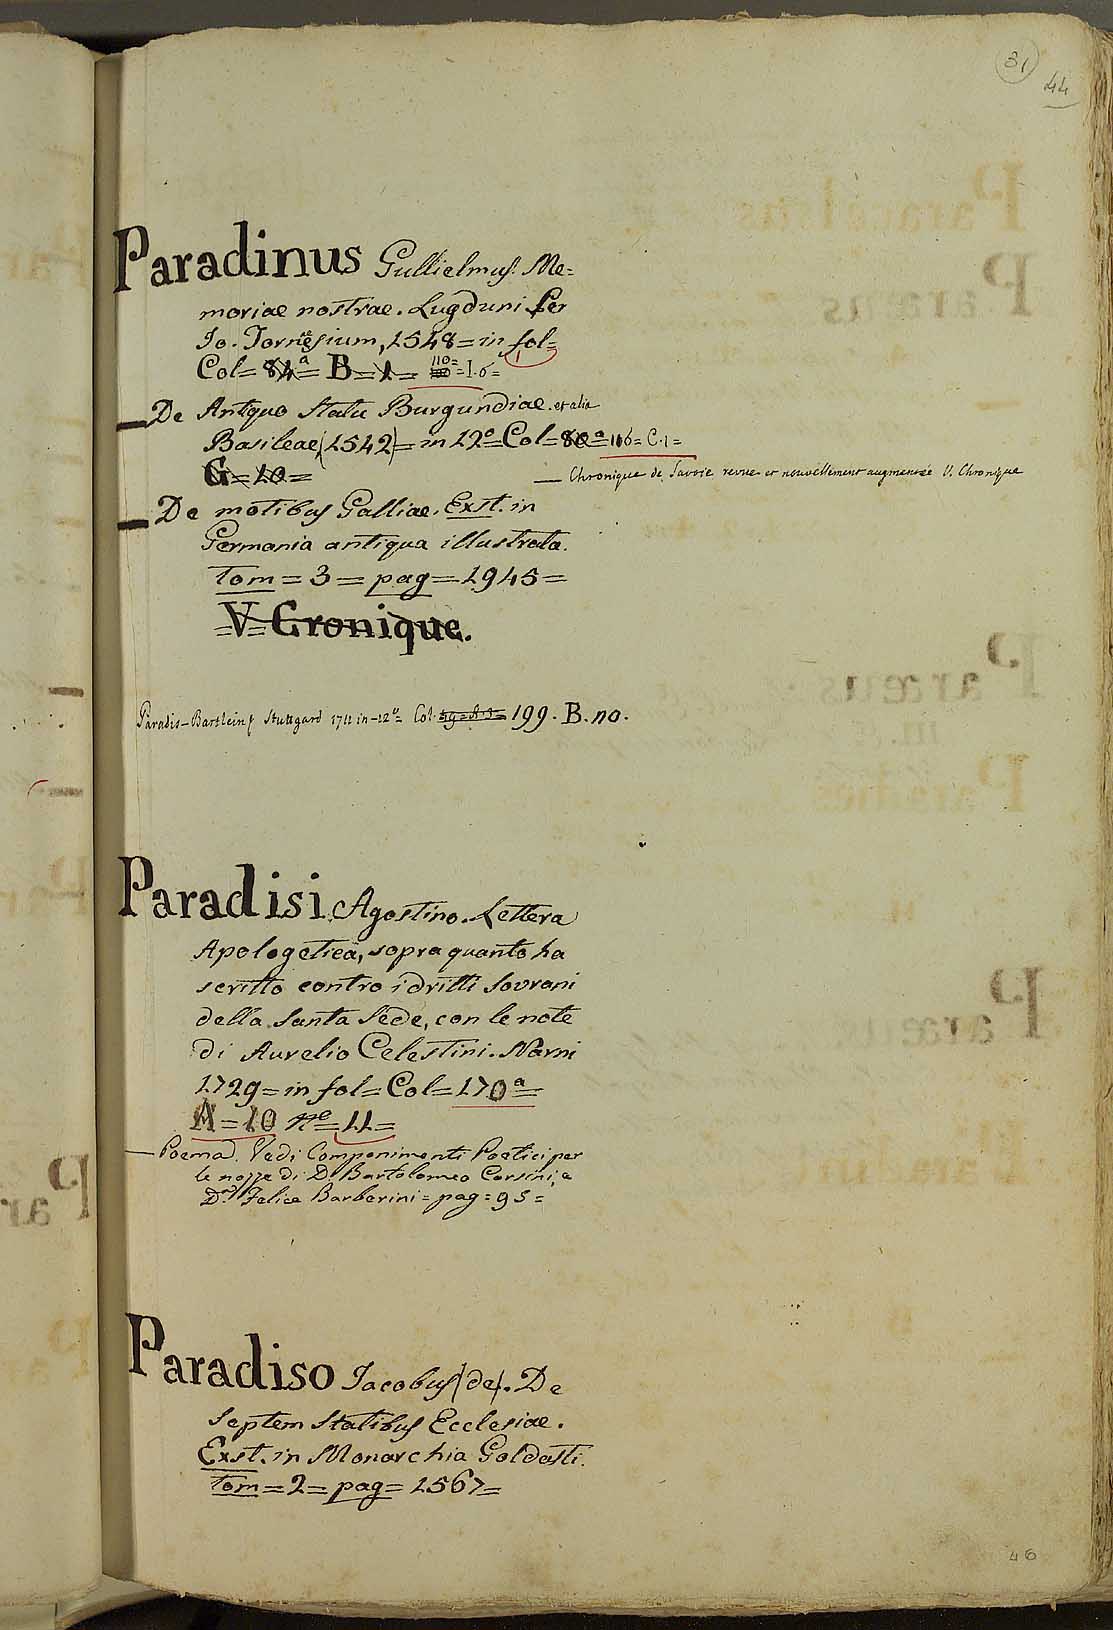 31
44
Paradinus Gullielmus. Me=
moriae nostrae. Lugduni per
Io. Tornesium, 1548 = in fol=
Col= 84ª= B= 1= 110= I.6=
De Antquo Statu Burgundiae. et alia
Basileae (1542) = in 12º= Col= 80ª= 116= C.1=
G= 10=
Chronique de Savoie revue et nouvellement augmentée V. Chronique
De motibus Galliae. Exst. in
Germania antiqua illustrata.
Tom= 3= pag= 1945=
=V= Cronique.
Paradis-Bartleins Stuttgard 1711 in-12º= Col. 199. B. no.
Paradisi Agostino. Lettera
Apologetica, sopra quanto ha
scritto contro i dritti Sovrani
della Santa Sede, con le note
di Aurelio Celestini. Narni
1729= in fol= Col= 170ª=
A= 10 nº= 11=
Poema. Vedi Componimenti Poetici per
le nozze di D. Bartolomeo Corsini, e
D. Felice Barberini= pag= 95=
Paradiso Jacobus (de). De
septem Statibus Ecclesiae.
Exst. in Monarchia Goldasti.
Tom= 2= pag= 1567=
46